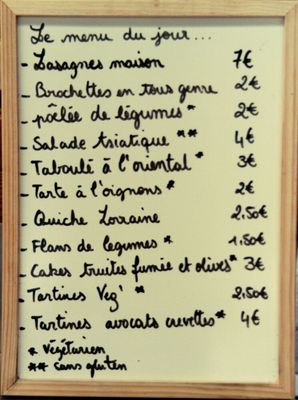 Le menu du jour...
- Lasagnes maison 7€
- Brochettes en tous genre 2€
- pôêlée de légumes* 2€
- Salade tsiatique ** 4€
- Taboulé à l'oriental* 3€
- Tarte à l'oignons* 2€
- Quiche Lorraine 2,50€
- Flans de legumes * 1,50€
- Cakes truites fumée et olives* 3€
- Tartines Veg' * 2,50€
- Tartines avocats crevettes* 4€
* Végétarien
** Sans gluten